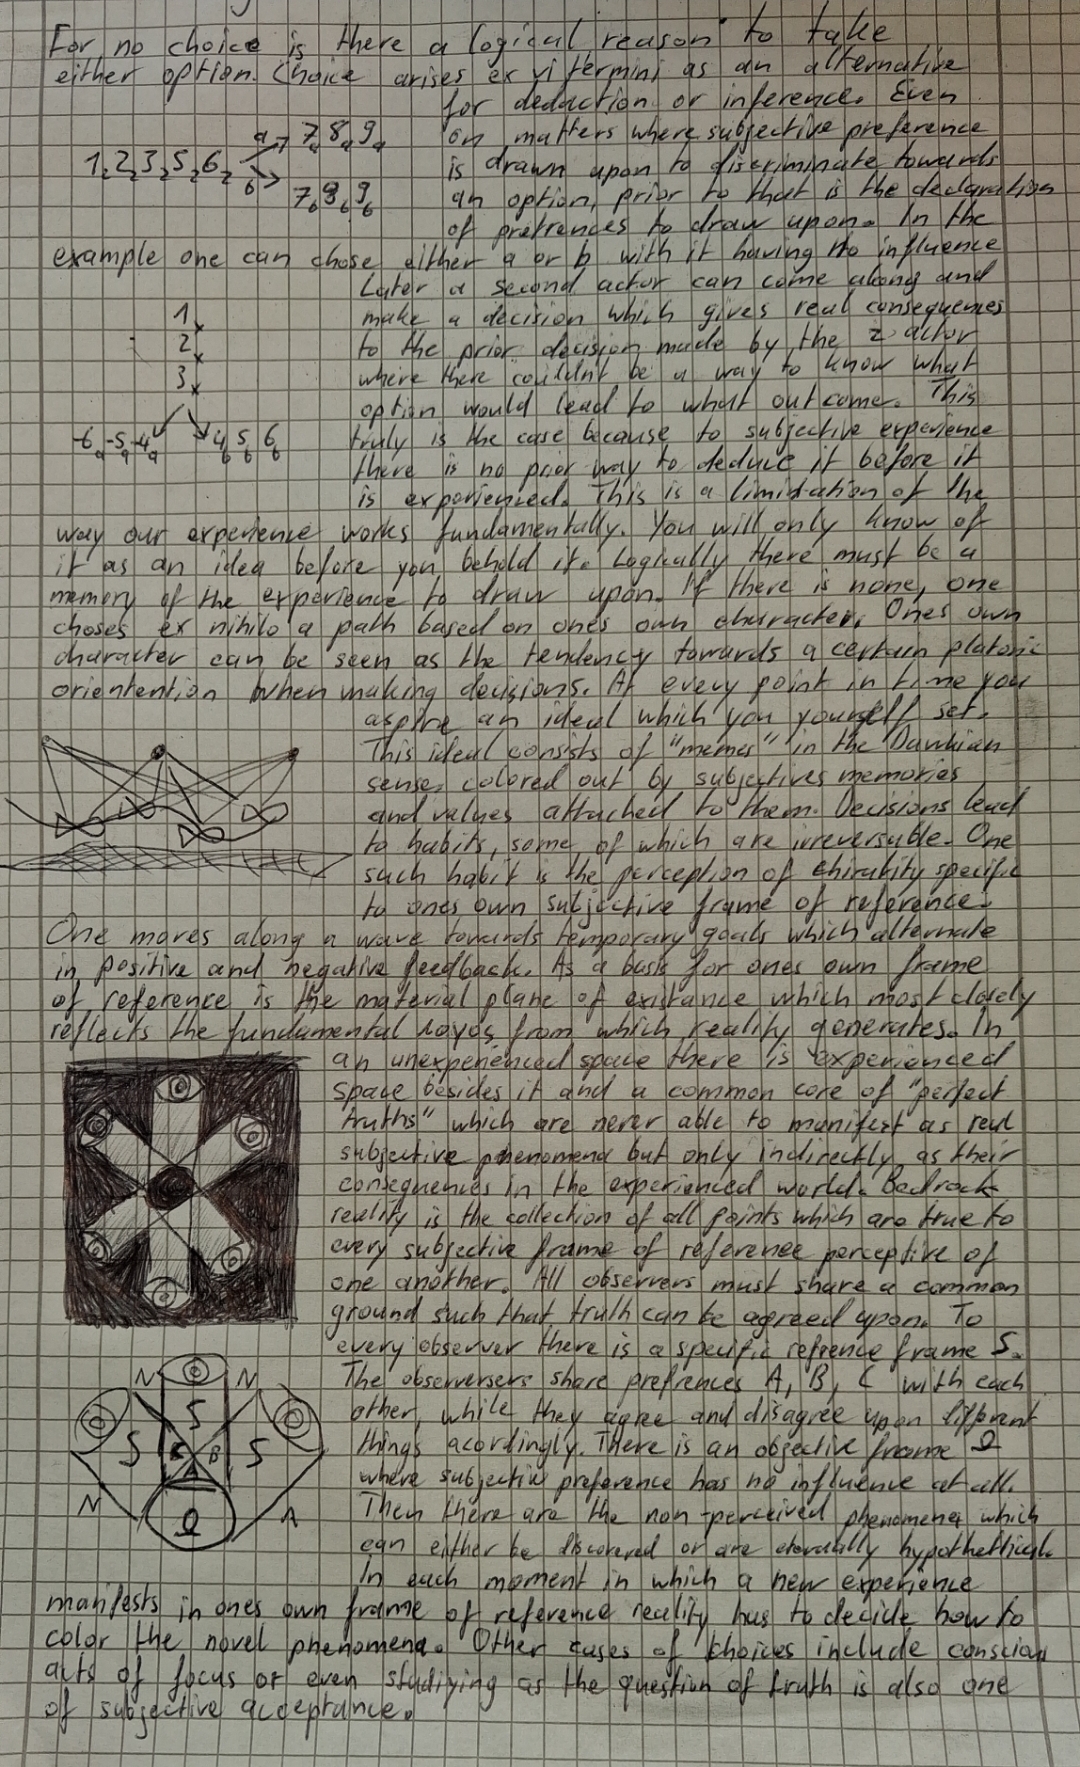 For no choice is there a logical reason to take
either option. Choice arises ex vi termini as an alternative
for deduction or inference. Even
on matters where subjective preference
is drawn upon to discriminate towards
an option, prior to that is the declaration
of prefrences to draw upon. In the
1 2 2 3 2 5 2 6 2
a 7 a 8 a 9 a
b 7 b 8 b 9 b
example one can chose either a or b with it having no influence
Later a second actor can come along and
make a decision which gives real consequences
to the prior decision made by the 2 actor
where there couldn't be a way to know what
option would lead to what outcome. This
truly is the case because to subjective experience
there is no prior way to deduce it before it
is experienced. This is a limitation of the
1 x
2 x
3 x
-6 a -5 a -4 a 4 b 5 b 6 b
way our experience works fundamentally. You will only know of
it as an idea before you behold it. Logically there must be a
memory of the experience to draw upon. If there is none, one
choses ex nihilo a path based on ones own character. Ones own
character can be seen as the tendency towards a certain platonic
orientention when making decisions. At every point in time you
aspire an ideal which you yourself set.
This ideal consists of "memes" in the
sense, colored out by subjectives memories
and values attached to them. Decisions lead
to habits, some of which are irreversable. One
such habit is the perception of chirality specific
to ones own subjective frame of reference.
One moves along a wave towards temporary goals which alternate
in positive and negative feedback. As a basis for ones own frame
of reference is the material plane of existance which most closely
reflects the fundamental from which reality generates. In
an unexperienced space there is experienced
space besides it and a common core of "perfect
truths" which are never able to manifest as real
subjective phenomena but only indirectly as their
consequences in the experienced world. Bedrock
reality is the collection of all points which are true to
every subjective frame of reference perceptive of
one another. All observers must share a common
ground such that truth can be agreed upon. To
every observer there is a specific refrence frame S.
The obserersers share prefrences A, B, C with each
other, while they agree and disagree upon different
things acordingly. There is an objective frame Ω
where subjective preference has no influence at all.
Then there are the non-perceived phenomena which
can either be discovered or are eternally hypothetical.
In each moment in which a new experience
N N
S
S C B S
A
N Ω A
manifests in ones own frame of reference reality has to decide how to
color the novel phenomena. Other cases of choices include conscious
acts of focus or even studiying as the question of truth is also one
of subjective acceptance.